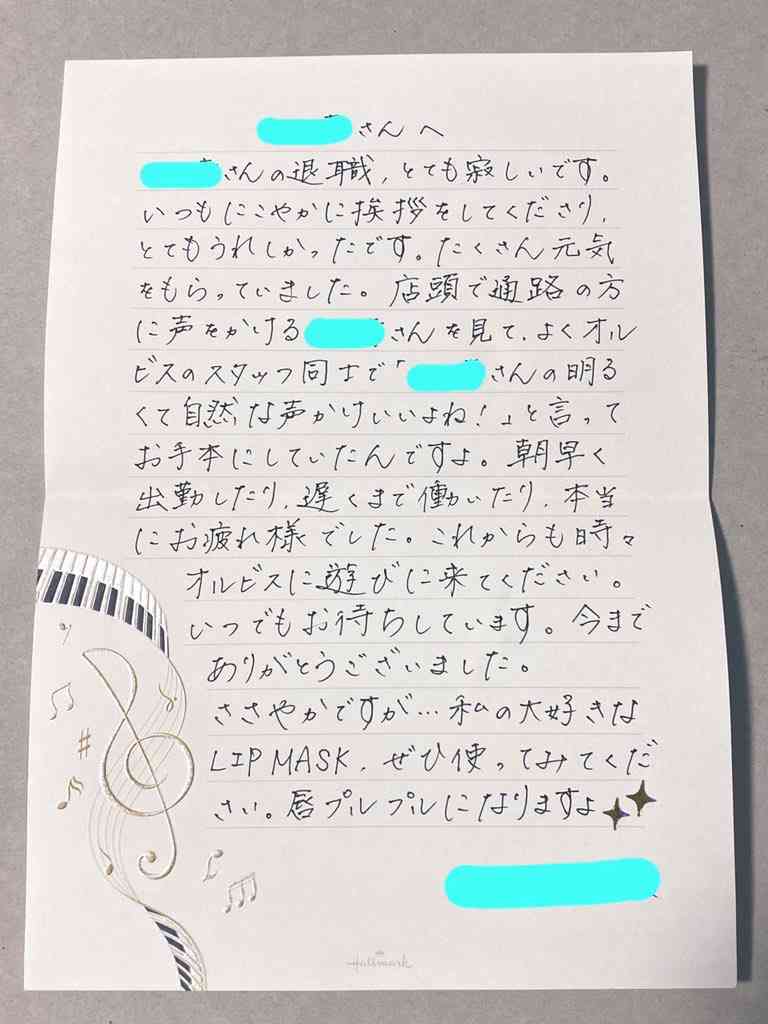 さんへ
さんの退職、とても寂しいです。
いつもにこやかに挨拶をしてくださり、
とてもうれしかったです。たくさん元気
をもらっていました。店頭で通路の方
に声をかけるさんを見て、よくオル
ビスのスタッフ同士で「さんの明る
くて自然な声かけいいよね！」と言って
お手本にしていたんですよ。朝早く
出勤したり、遅くまで働いたり、本当
にお疲れ様でした。これからも時々
オルビスに遊びに来てください。
いつでもお待ちしています。今まで
ありがとうございました。
ささやかですが…私の大好きな
LIP MASK、ぜひ使ってみてくだ
さい。唇プルプルになりますよ
Hallmark